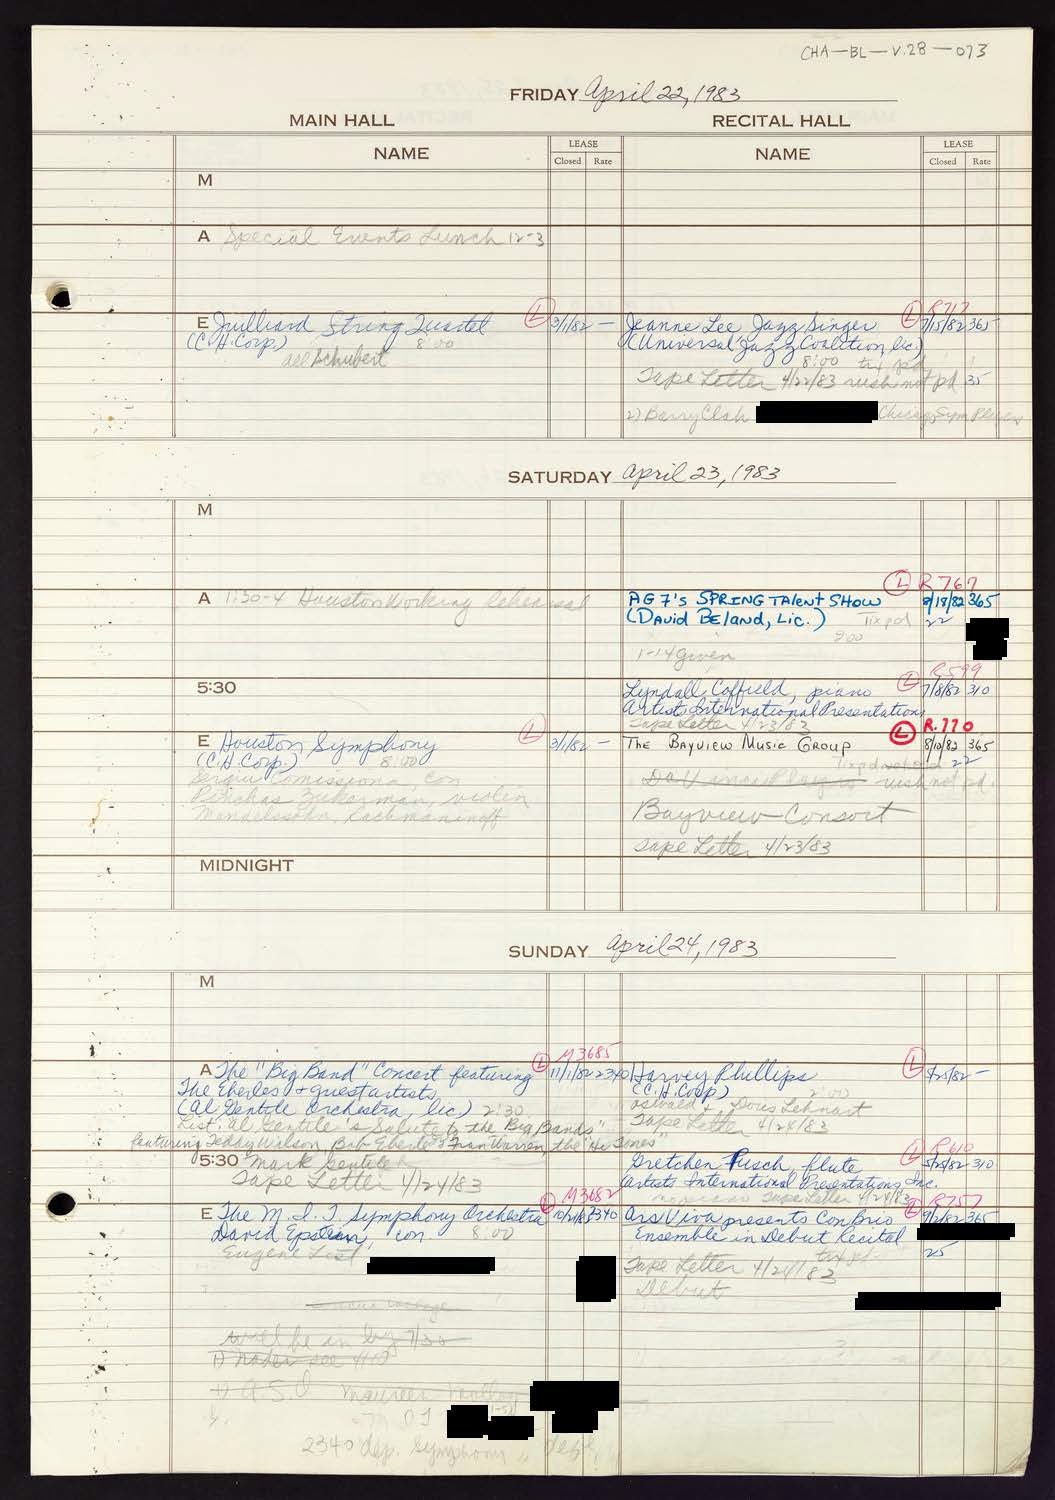 CHA-BL-V.28-073
FRIDAY April 22, 1983
MAIN HALL
RECITAL HALL
NAME
LEASE
Closed Rate
NAME
LEASE
Closed Rate
M
A Special Events Lunch 12-3
E Juilliard String Quartet
L 3/1/82 -
(C.H. Corp.) 8:00
all Schubert
L R717
Jeanne Lee Jazz Singer 7/15/82 365
(Universal Jazz Coalition, lic.)
8:00 tix pd
Tape Letter 4/22/83 rush not pd 35
2) Barry Clah
SATURDAY April 23, 1983
M
A 1:30-4 Houston Working Rehearsal
L R767
AG7's SPRING TALENT SHOW 8/18/82 365
(DAVID BELAND, LIC.) Tix pd 22
2:00
1-14 given
5:30
L R599
Lyndall Coffield, piano 7/8/82 310
Artists International Presentations
Tape Letter 4/23/83
E Houston Symphony
L 3/1/82 -
(C.H. Corp.) 8:00
Sergiu Comissiona, con
Pinchas Zukerman, violin
Mendelssohn, Rachmaninoff
L R.770
THE BAYVIEW MUSIC GROUP 8/10/82 365
22
Da Vinci Players rush not pd.
Bayview Consort
Tape Letter 4/23/83
MIDNIGHT
SUNDAY April 24, 1983
M
L M3685
A The "Big Band" Concert featuring 11/1/82 2340
The Eberles & guest artists
(Al Gentile Orchestra, lic) 2:30
List: "Al Gentile's Salute to the Big Bands"
featuring Teddy Wilson, Bob Eberle & Fran Warren, the "Hi Tones"
L
Harvey Phillips -
(C.H. Corp) 2:00
Oswald & Doris Lehnart
Tape Letter 4/24/83
5:30 Mark Gentile
Tape Letter 4/24/83
L R610
Gretchen Pusch, flute 5/25/82 310
Artists International Presentations, Inc.
Tape Letter 4/24/83
L M3682
E The M.I.T. Symphony Orchestra 2340
David Epstein, con. 8:00
Eugene List
L R757
Ars Viva presents Con Brio 365
Ensemble in Debut Recital
25
Tape Letter 4/24/83 tix pd
Debut
will be in by 7/30
2340 dep. Symphony